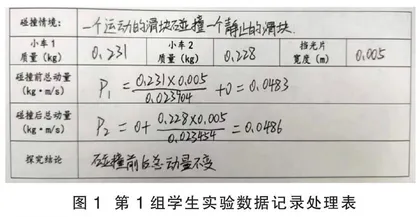 碰撞情境： 一个运动的滑块碰撞一个静止的滑块.
小车1质量（kg） 0.231 小车2质量（kg） 0.228 挡光片宽度（m） 0.005
碰撞前总动量（kg·m/s） P₁ = (0.231×0.005)/0.023904 + 0 = 0.0483
碰撞后总动量（kg·m/s） P₂ = 0 + (0.228×0.005)/0.023454 = 0.0486
探究结论 碰撞前后总动量不变
图1 第1组学生实验数据记录处理表